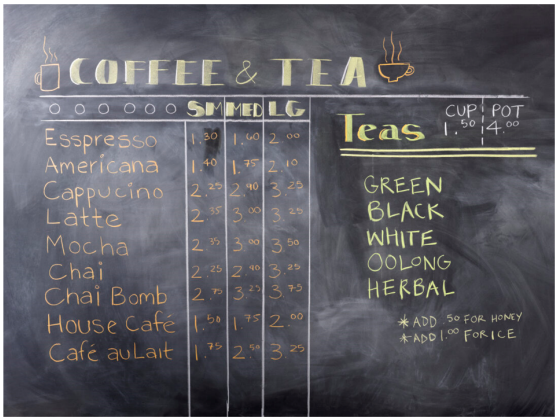 COFFEE & TEA
SM MED LG
Esspresso 1.30 1.60 2.00
Americana 1.40 1.75 2.10
Cappucino 2.25 2.90 3.25
Latte 2.35 3.00 3.25
Mocha 2.35 3.00 3.50
Chai 2.25 2.90 3.25
Chai Bomb 2.75 3.25 3.75
House Café 1.50 1.75 2.00
Café au Lait 1.75 2.50 3.25
Teas CUP 1.50 POT 4.00
GREEN
BLACK
WHITE
OOLONG
HERBAL
* ADD .50 FOR HONEY
* ADD 1.00 FOR ICE